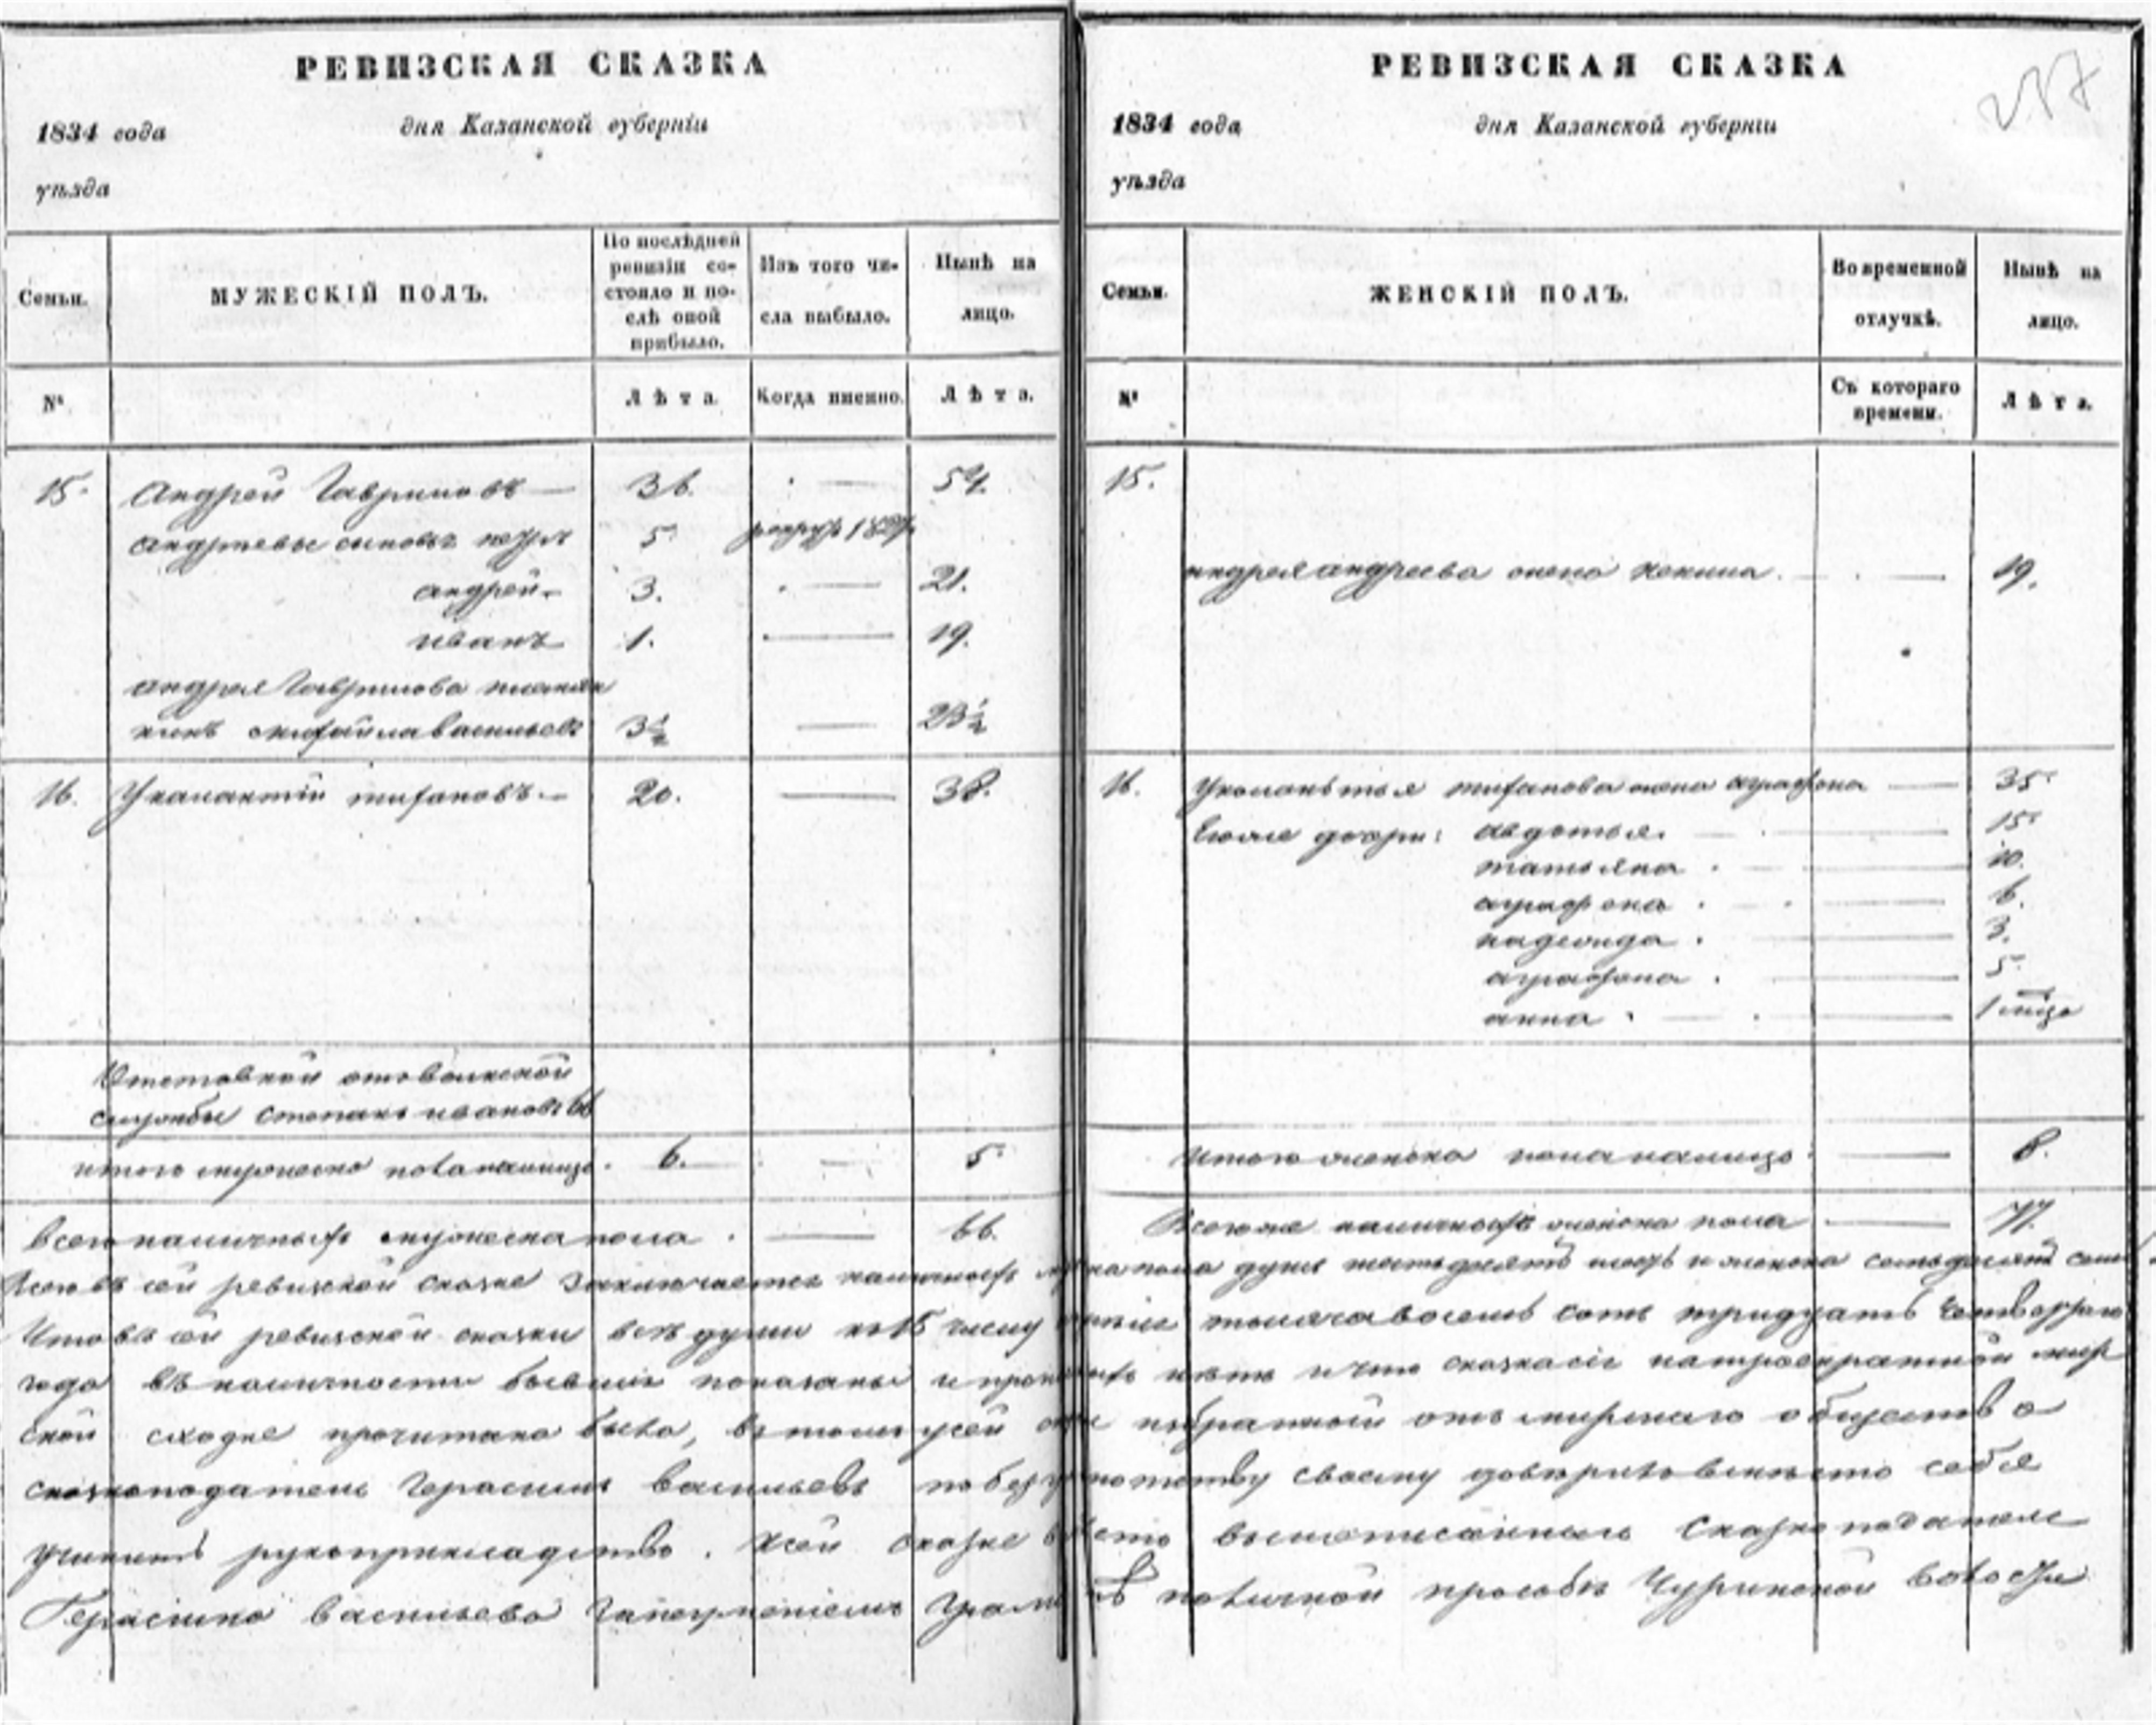 РЕВИЗСКАЯ СКАЗКА
1834 года дня Казанской губерніи
уѣзда
Семьи.
МУЖЕСКІЙ ПОЛЪ.
По послѣдней
ревизіи со-
стояло и по-
слѣ оной
прибыло.
Изъ того чи-
сла выбыло.
Нынѣ на
лицо.
№
Лѣта.
Когда именно.
Лѣта.
15. Андрей Гавриловъ — 36. — 54.
Андреевы сыновья петръ 5 1827
андрей 3. — 21.
иванъ 1. — 19.
андрея Гаврилова племян
никъ михайла васильевъ 3½ — 23½
16. — 20. — 38.
Отставной отвоинской
службы степанъ ивановъ 66
итого мужеска пола налицо. 6. — 5
Всего наличныхъ мужеска пола — 66.
РЕВИЗСКАЯ СКАЗКА
1834 года дня Казанской губерніи
уѣзда
257
Семьи.
ЖЕНСКІЙ ПОЛЪ.
Во временной
отлучкѣ.
Нынѣ на
лицо.
№
Съ котораго
времени.
Лѣта.
15.
андрея андреева жена — 19.
16. жена аграфена — 35
Егоже дочери: авдотья. — 15
татьяна — 10.
аграфена — 6.
надежда — 3.
аграфена — 5
анна — 1 мѣца
Итого женска пола налицо — 8.
Всегоже наличныхъ женска пола — 77.
Всего въ сей ревизской сказке заключается наличныхъ пола душъ шестьдесятъ шесть и женска семьдесятъ семь
Что въ сей ревизской сказки все души по 15 число тысяча восемь сотъ тридцать четвертаго
года въ наличности бывшіе показаны и нетъ и что сказка сіе натроекратной мир
ской сходке прочитана была, въ томъ избранной отъ мирскаго общества
сказкоподатель Герасимъ васильевъ по безграмотству своему вместо себя
учинить рукоприкладство. Ксей сказке вместо вышеписаннаго сказкоподателя
Герасима васильева поличной прозьбе Чуринской волости